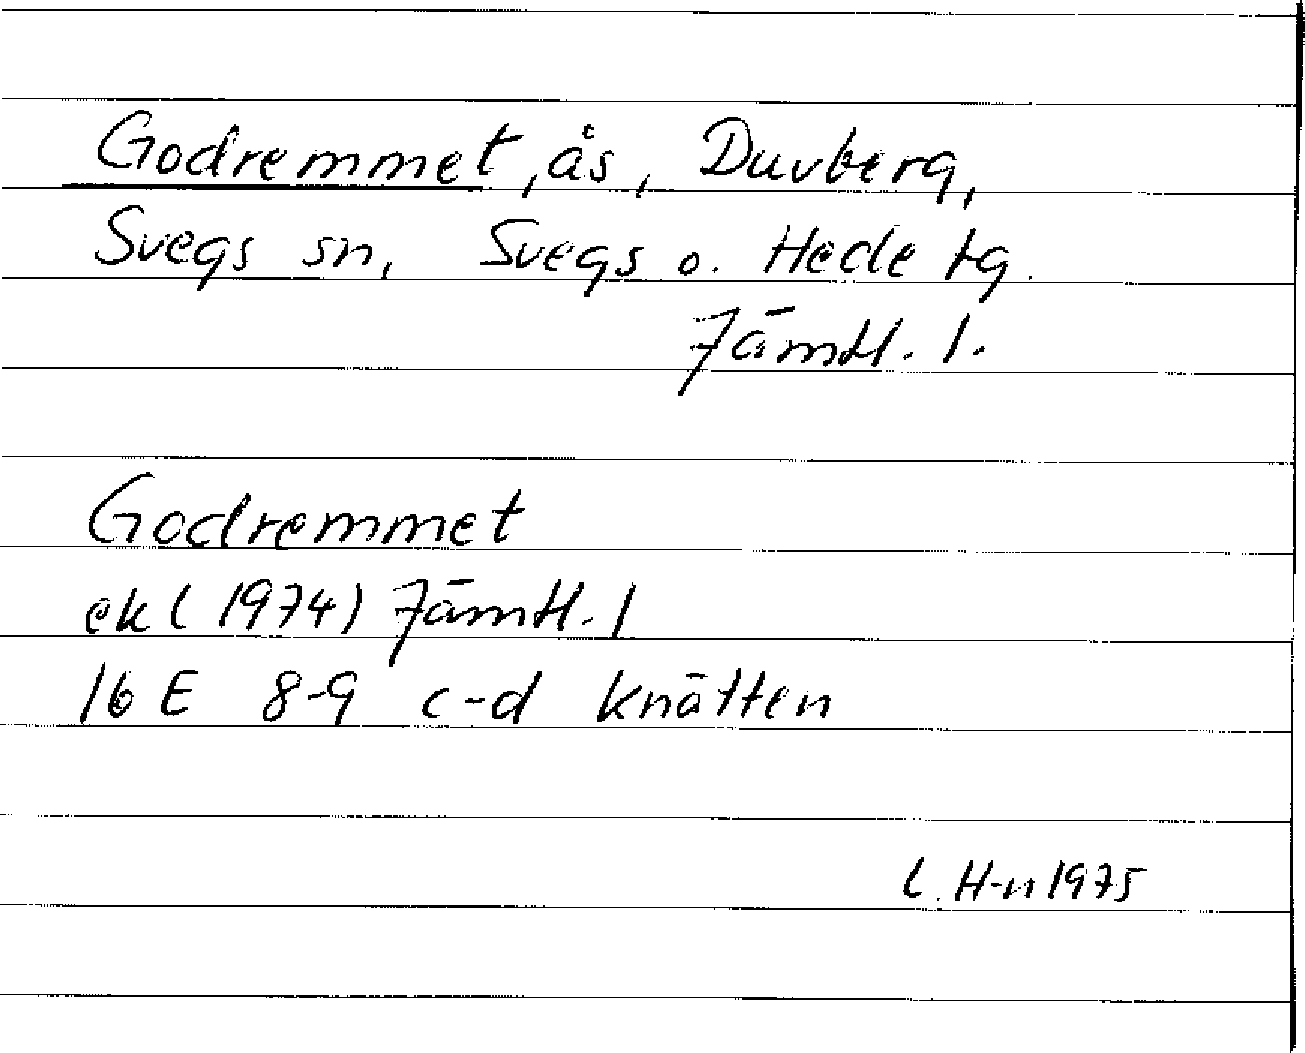 Godremmet, ås, Duvberg,
Svegs sn, Svegs o. Hede tg.
Jämtl. l.
Godremmet
ek (1974) Jämtl. l
16 E 8-9 c-d Knätten
L. H-n 1975